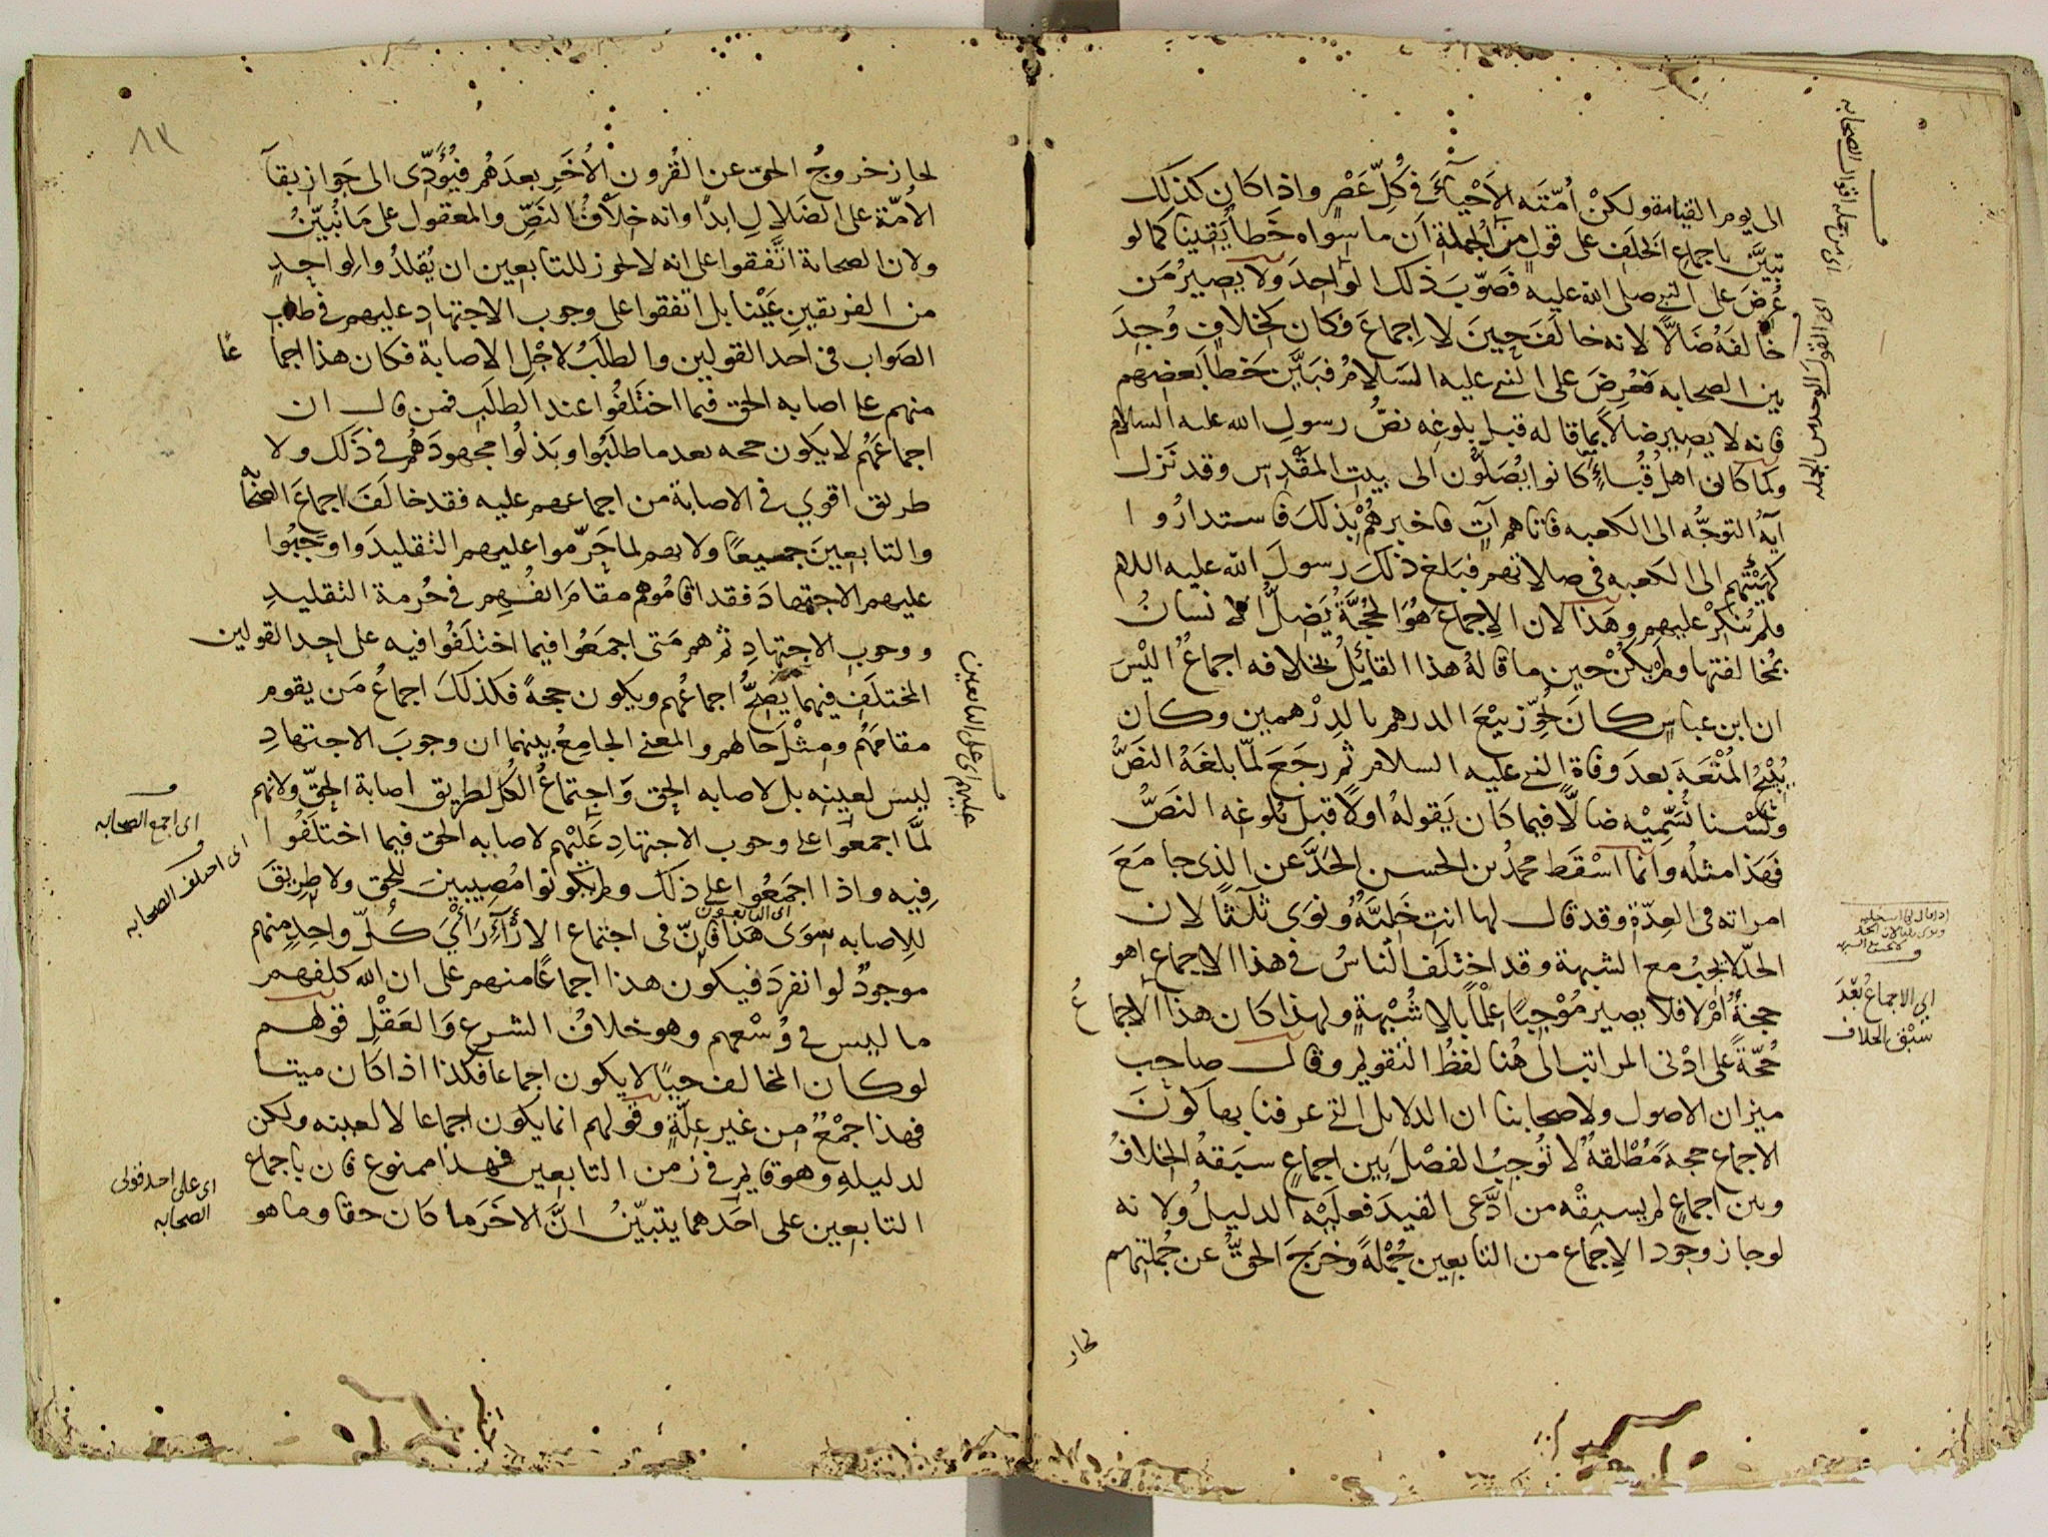 الى يوم القيامة ولكن أمّتَه الأَحْياءَ في كُلِّ عَصْرٍ واذا كان كذلك
تبيَّنَ باجماعِ الخلَفِ على قولٍ من الجملة اَن ما سواه خَطأٌ يَقينا كما لو
عُرِضَ على النبي صلى الله عليه فَصَوّبَ ذلك الواحِدَ ولا يصيرُ مَن
خالَفَهُ ضالًّا لانه خالَفَ حينَ لا اِجماعَ فكان كخلافٍ وُجِدَ
بين الصحابه فعُرِضَ على النبي عليه السَلامُ فبَيَّن خَطأَ بَعضِهم
فانه لا يصير ضالاً بما قاله قبل بلوغِه نصُّ رسولِ الله عليه السلام
ولما كان اهلُ قُباءٍ كانوا يُصَلّون الى بيت المقْدِس وقد نَزل
آيةُ التوجُّه الى الكعبه فاتاهم آتٍ فاخبرهُمْ بذلك فاستدارُوا
كهَيْئتِهم الى الكعبه في صلاتهم فبَلغ ذلك رسولَ الله عليه السلام
فلم يُنكِرْ عليهم وهَذا لان الاِجماعَ هُوَ الحُجَّةُ يَضِلُّ الانسانُ
بمُخالفتها ولم يكُنْ حين ما قالهُ هذا القائلُ بخلافه اجماعٌ اليْسَ
ان ابن عباسٍ كان يُجوّز بيْعَ الدرهم بالدِرْهمين وكان
يُبيْحُ المُتْعَةَ بعدَ وفاةِ النبي عليه السلام ثم رجَعَ لمّا بلغَهُ النصُّ
ولَسْنا نُسَمِّيْه ضالًّا فيما كان يَقولهُ اولاً قبل بُلوغِه النَصُّ
فهَذا مثلُه وانما اسْقَط محمدُ بن الحسن الحَدَّ عن الذي جامَعَ
امراته في العِدّةِ وقد قال لها انتِ خَليَّةٌ ونَوَى ثلثًا لان
الحدّ لا يجبُ مع الشبهة وقد اختلَف الناسُ في هذا الاجماع اهو
حجةٌ اَمْ لا فلا يصير مُوْجِبًا عِلْمًا بلا شُبْهةٍ ولهذا كان هذا الاجما
عُ
حُجّةً على ادْنى المراتب الى هُنا لفظُ التقويم وقال صاحب
ميزان الاصول ولاصحابنا ان الدلايل التي عرفنا بها كونَ
الاجماعِ حجةً مُطْلقةً لا تُوجِبُ الفصْلَ بين اجماعٍ سبَقهُ الخلافُ
وبين اجماعٍ لم يسبقْه من ادَّعى القيدَ فعليْه الدليلُ ولانه
لو جاز وجود الاِجماعِ من التابعين جُمْلةً وخرَجَ الحقُّ عن جُملتِهم
لجاز
اي من جمله اقوال الصحابه
هو القول الواحد من الجملة
اي الاجماع بَعْدَ
سَبْقِ الخلاف
٨٣
لجاز خروجُ الحق عن القُرون الاُخَرِ بعدَهُم فيُؤدّى الى جَوازِ بقاَ
الاُمّة على الضَلالِ ابدًا وانه خلافُ النَصِّ والمعقول على مَا نُبيّنُ
ولان الصحابة اتّفقوا على انه لا يجوز للتابعين ان يُقلدُوا الواحِدِ
من الفريقين عَيْنا بل اتفقوا على وجوب الاجتهادِ عليهم في طلب
الصَواب في احد القولين والطلَبُ لاجْلِ الاصابة فكان هذا اجما
عًا
منهم على اصابه الحق فيما اختلفُوا عند الطلَبِ فمن قال ان
اجماعَهُم لا يكون حجه بعد ما طلَبُوا وبَذلُوا مجهودَهُم في ذَلك ولا
طريق اقوي في الاصابة من اجماعهم عليه فقد خالَفَ اجماعَ الصحابة
والتابعينَ جميعًا ولانهم لما حَرّموا عليهم التقليدَ واوجَبُوا
عليهم الاجتهادَ فقد اقامُوهم مقامَ انفُسِهِم في حُرمة التقليدِ
ووجوب الاجتهادِ ثم هم مَتى اجمَعُوا فيما اختلَفُوا فيه على احد القولين
المختلَفِ فيهما يَصحُّ اجماعُهم ويكون حجةً فكذلك اجماعُ مَن يقوم
مقامَهُم ومِثْلَ حالهم والمعنى الجامِعُ بينهما ان وجوبَ الاجتهادِ
ليس لعينِه بل لاصابه الحقِ وَاجتماعُ الكُل طريق اصابة الحقّ ولانهم
لمّا اجمعوا على وجوب الاجتهادِ عَلَيْهم لاصابه الحق فيما اختلَفُوا
فِيه واذا اجمَعُوا على ذلك ولم يكونوا مُصِيبينَ للحق ولا طريقَ
للاِصابه سِوَى هَذا فاِنّ في اجتماع الارْآءِ رَاْيَ كُلّ واحدٍ منهم
اى التابعون
موجودٌ لو انفرَدَ فيكون هذا اجماعًا منهم على ان الله كلفهم
ما ليس في وُسْعِهم وهو خلافُ الشرع وَالعَقْلِ قولهم
لو كان المخالف حيًّا لا يكون اجماعا فكذا اذا كان ميتا
فهذا جمْعٌ من غير عِلّةٍ وقولهم انما يكون اجماعا لا لعينه ولكن
لدليلهِ وهو قايم في زمن التابعين فهذا ممنوع فان باجماع
التابعين على احَدهما يتبيّنُ انَّ الاخَرَ ما كان حقا وما هو
عليهم اي على التابعين
اى اجمع الصحابه
اى اختلف الصحابه
اى على احد قولى
الصحابه